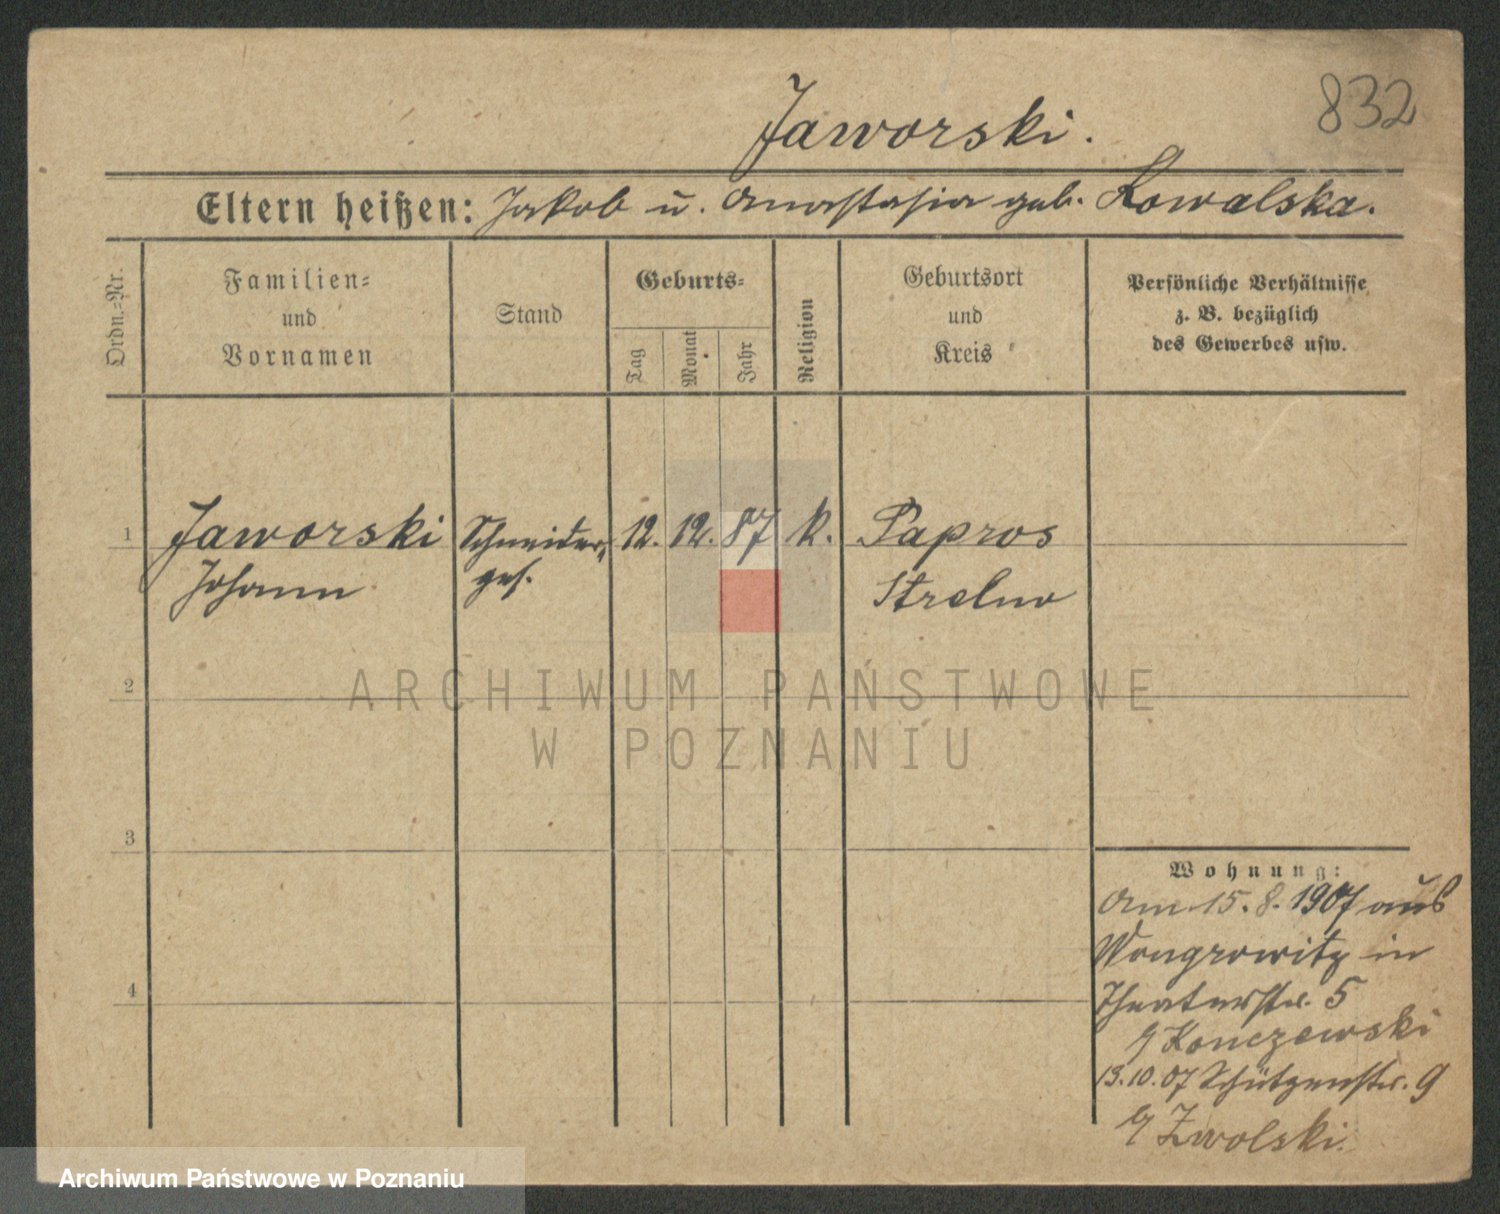 832
Jaworski.
Eltern heißen: Jakob u. Anastasia geb. Kowalska.
Ordn.-Nr.
Familien-
und
Vornamen
Stand
Geburts-
Tag
Monat
Jahr
Religion
Geburtsort
und
Kreis
Persönliche Verhältnisse
z. B. bezüglich
des Gewerbes usw.
1 Jaworski Schneider 12. 12. 87 k. Papros
Johann ges. Strelno
2
3
4
Wohnung:
Am 15. 8. 1907 aus
Wongrowitz in
Theaterstr. 5
b/ Konczewski
13.10.07 Schützenstr. 9
b/ Zwolski.
ARCHIWUM PAŃSTWOWE
W POZNANIU
Archiwum Państwowe w Poznaniu